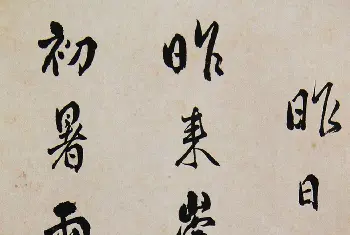 昨日
昨来
初暑雨